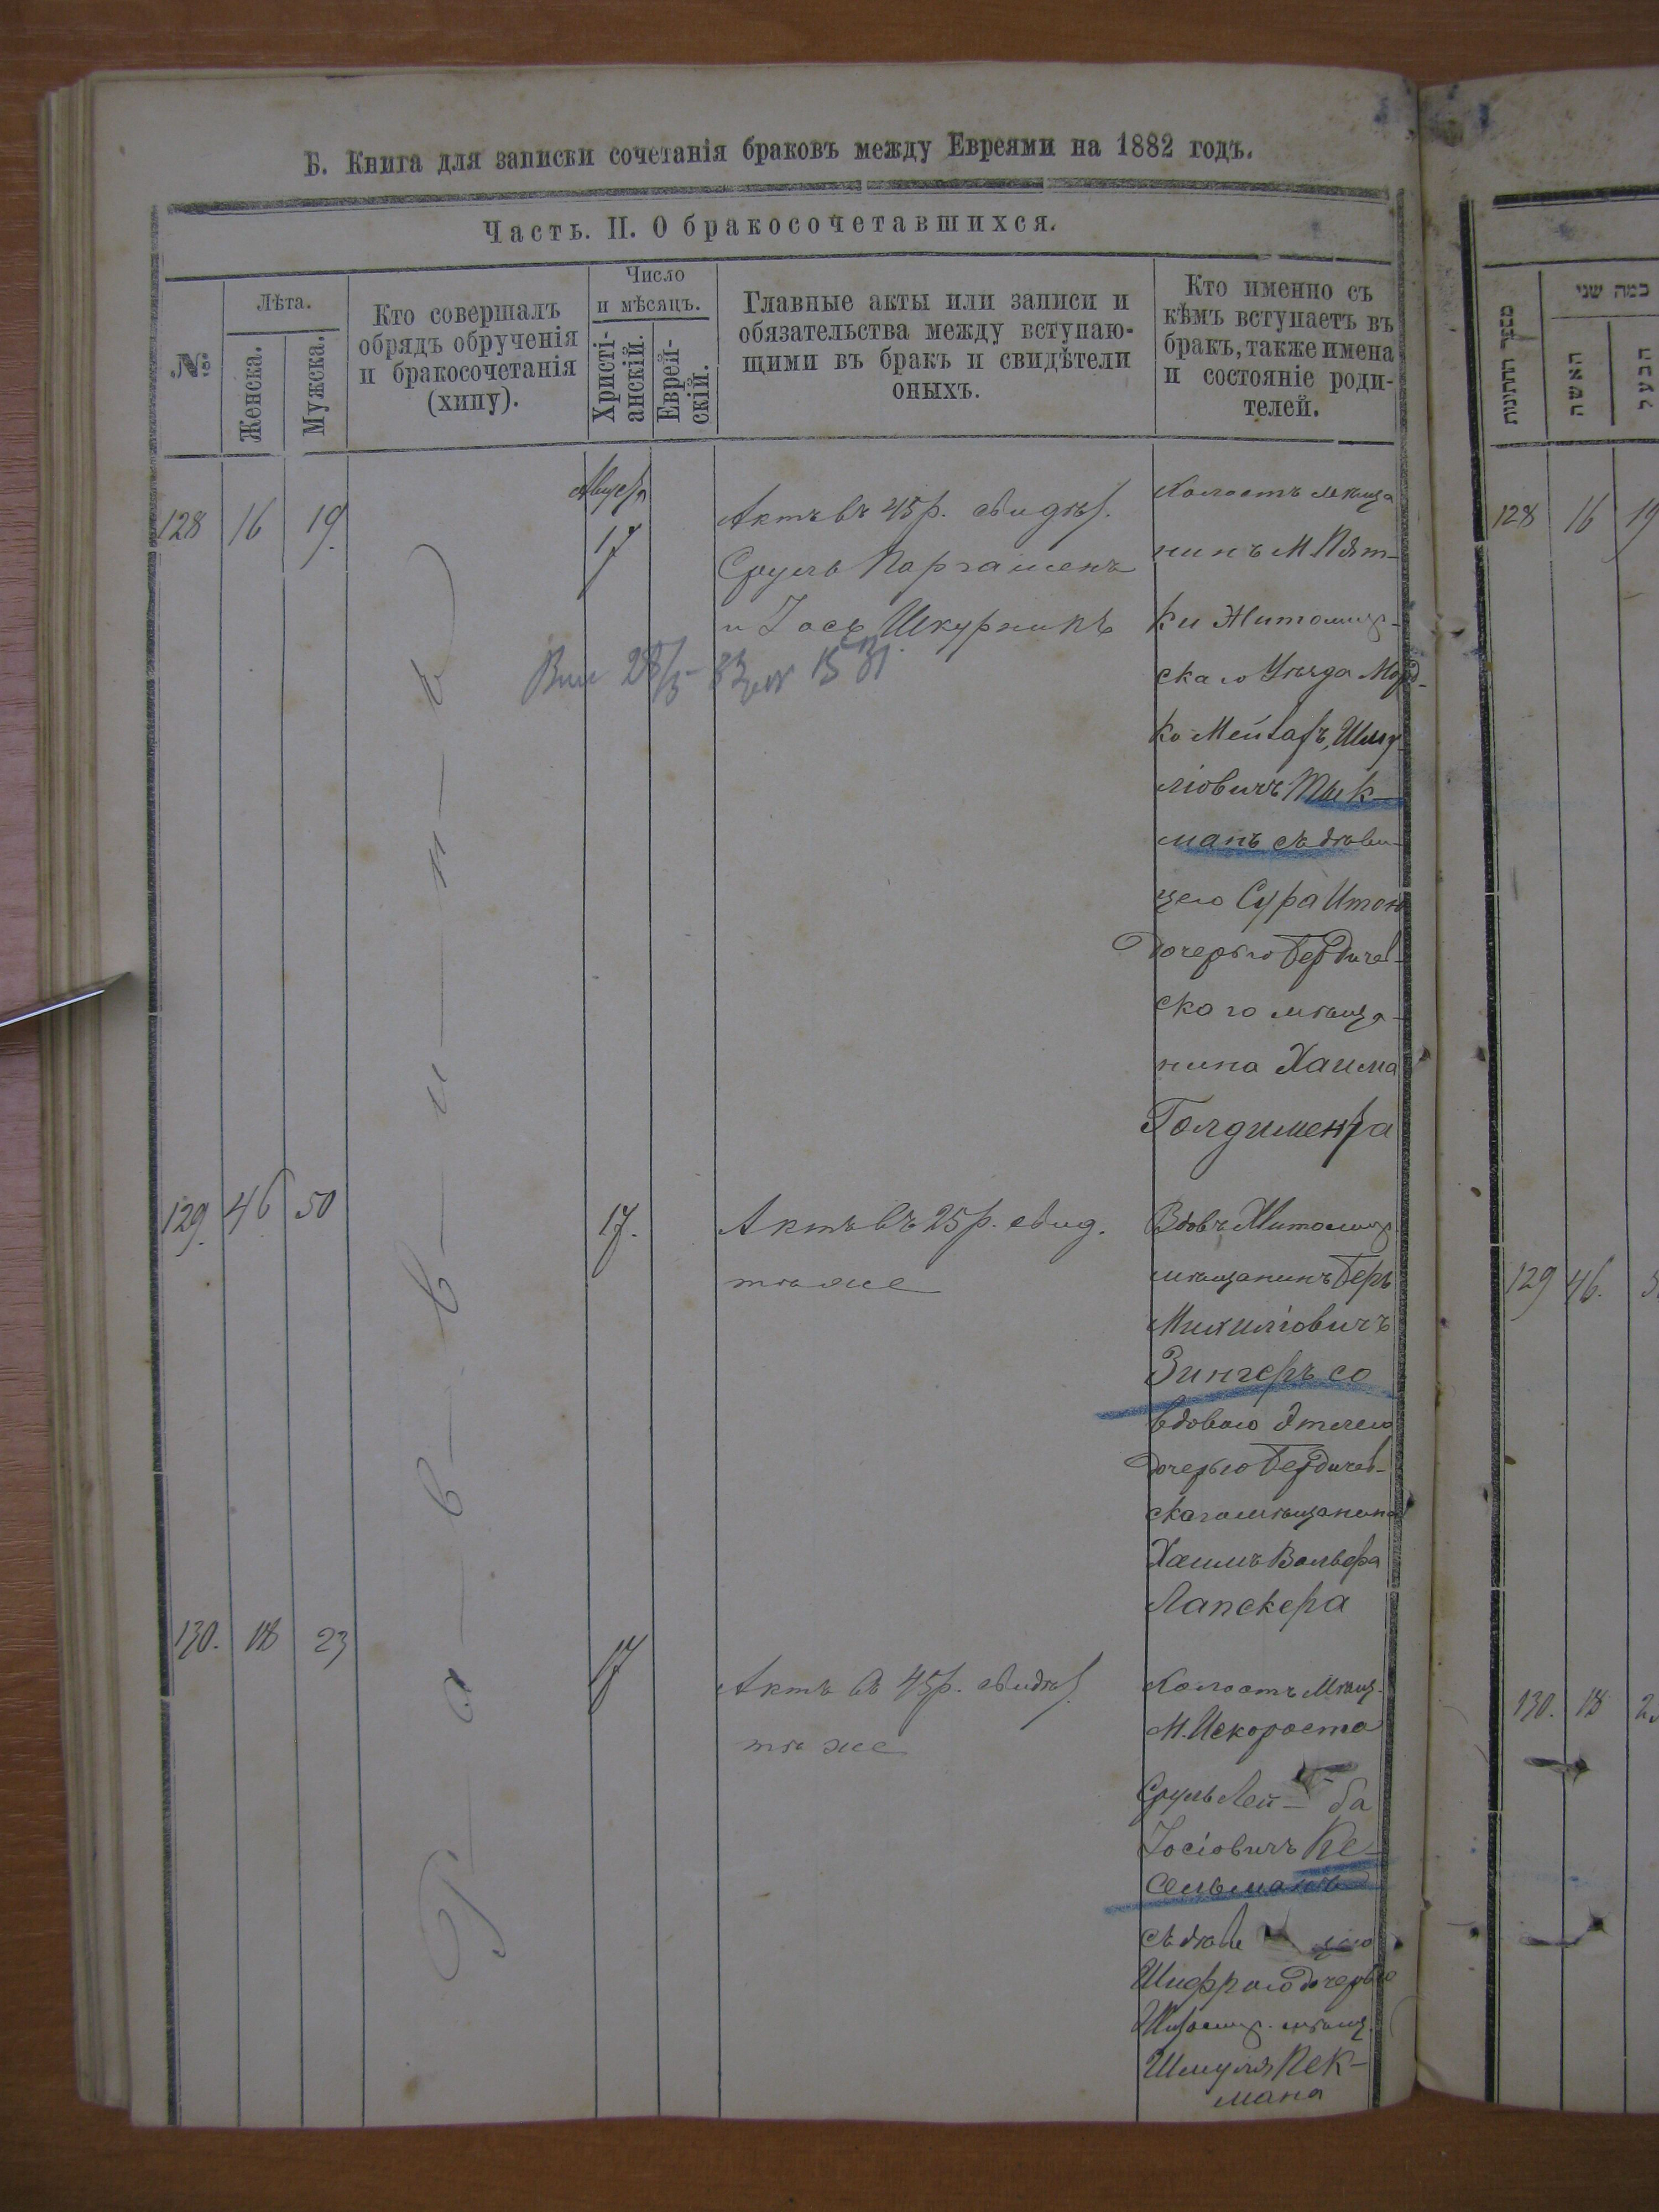 Б. Книга для записки сочетанія браковъ между Евреями на 1882 годъ.
Часть. II. О бракосочетавшихся.
№
Лѣта.
Женска.
Мужска.
Кто совершалъ
обрядъ обрученія
и бракосочетанія
(хипу).
Число
и мѣсяцъ.
Христі-
анскій.
Еврей-
скій.
Главные акты или записи и
обязательства между вступаю-
щими въ бракъ и свидѣтели
оныхъ.
Кто именно съ
кѣмъ вступаетъ въ
бракъ, также имена
и состояніе роди-
телей.
Р-а-в-в-и-н-ъ
128 16 19.
17
Актъ въ 45 р. свидѣт.
Сруль
и Іось Шкурникъ
Холостъ мѣща
нинъ М. Пят-
ки Житомир-
скаго Уѣзда Морд-
ко Шму
ліовичъ
манъ съ дѣви-
цею Сура
дочерью Бердичев-
скаго мѣща-
нина Хаима
129. 46 50
17.
Актъ въ 25 р. свид.
тѣже
Вдовъ Житомир.
мѣщанинъ Беръ
Михиліовичъ
Зингеръ со
вдовою Этлею
дочерью Бердичев-
скаго мѣщанина
Хаимъ Вольфа
Лапскера
130. 18 23
17
Актъ въ 45 р. свидѣт.
тѣ же
Холостъ Мѣщ.
М. Искороста
Сруль Лей-ба
Іосіовичъ Ке-
сельманъ
съ дѣви цею
Шифрою дочерью
Житомир. мѣщ.
Шмуля Пек-
мана
מספר החתונות
כמה שני
האשה
הבעל
128 16 19
129 46.
130. 18